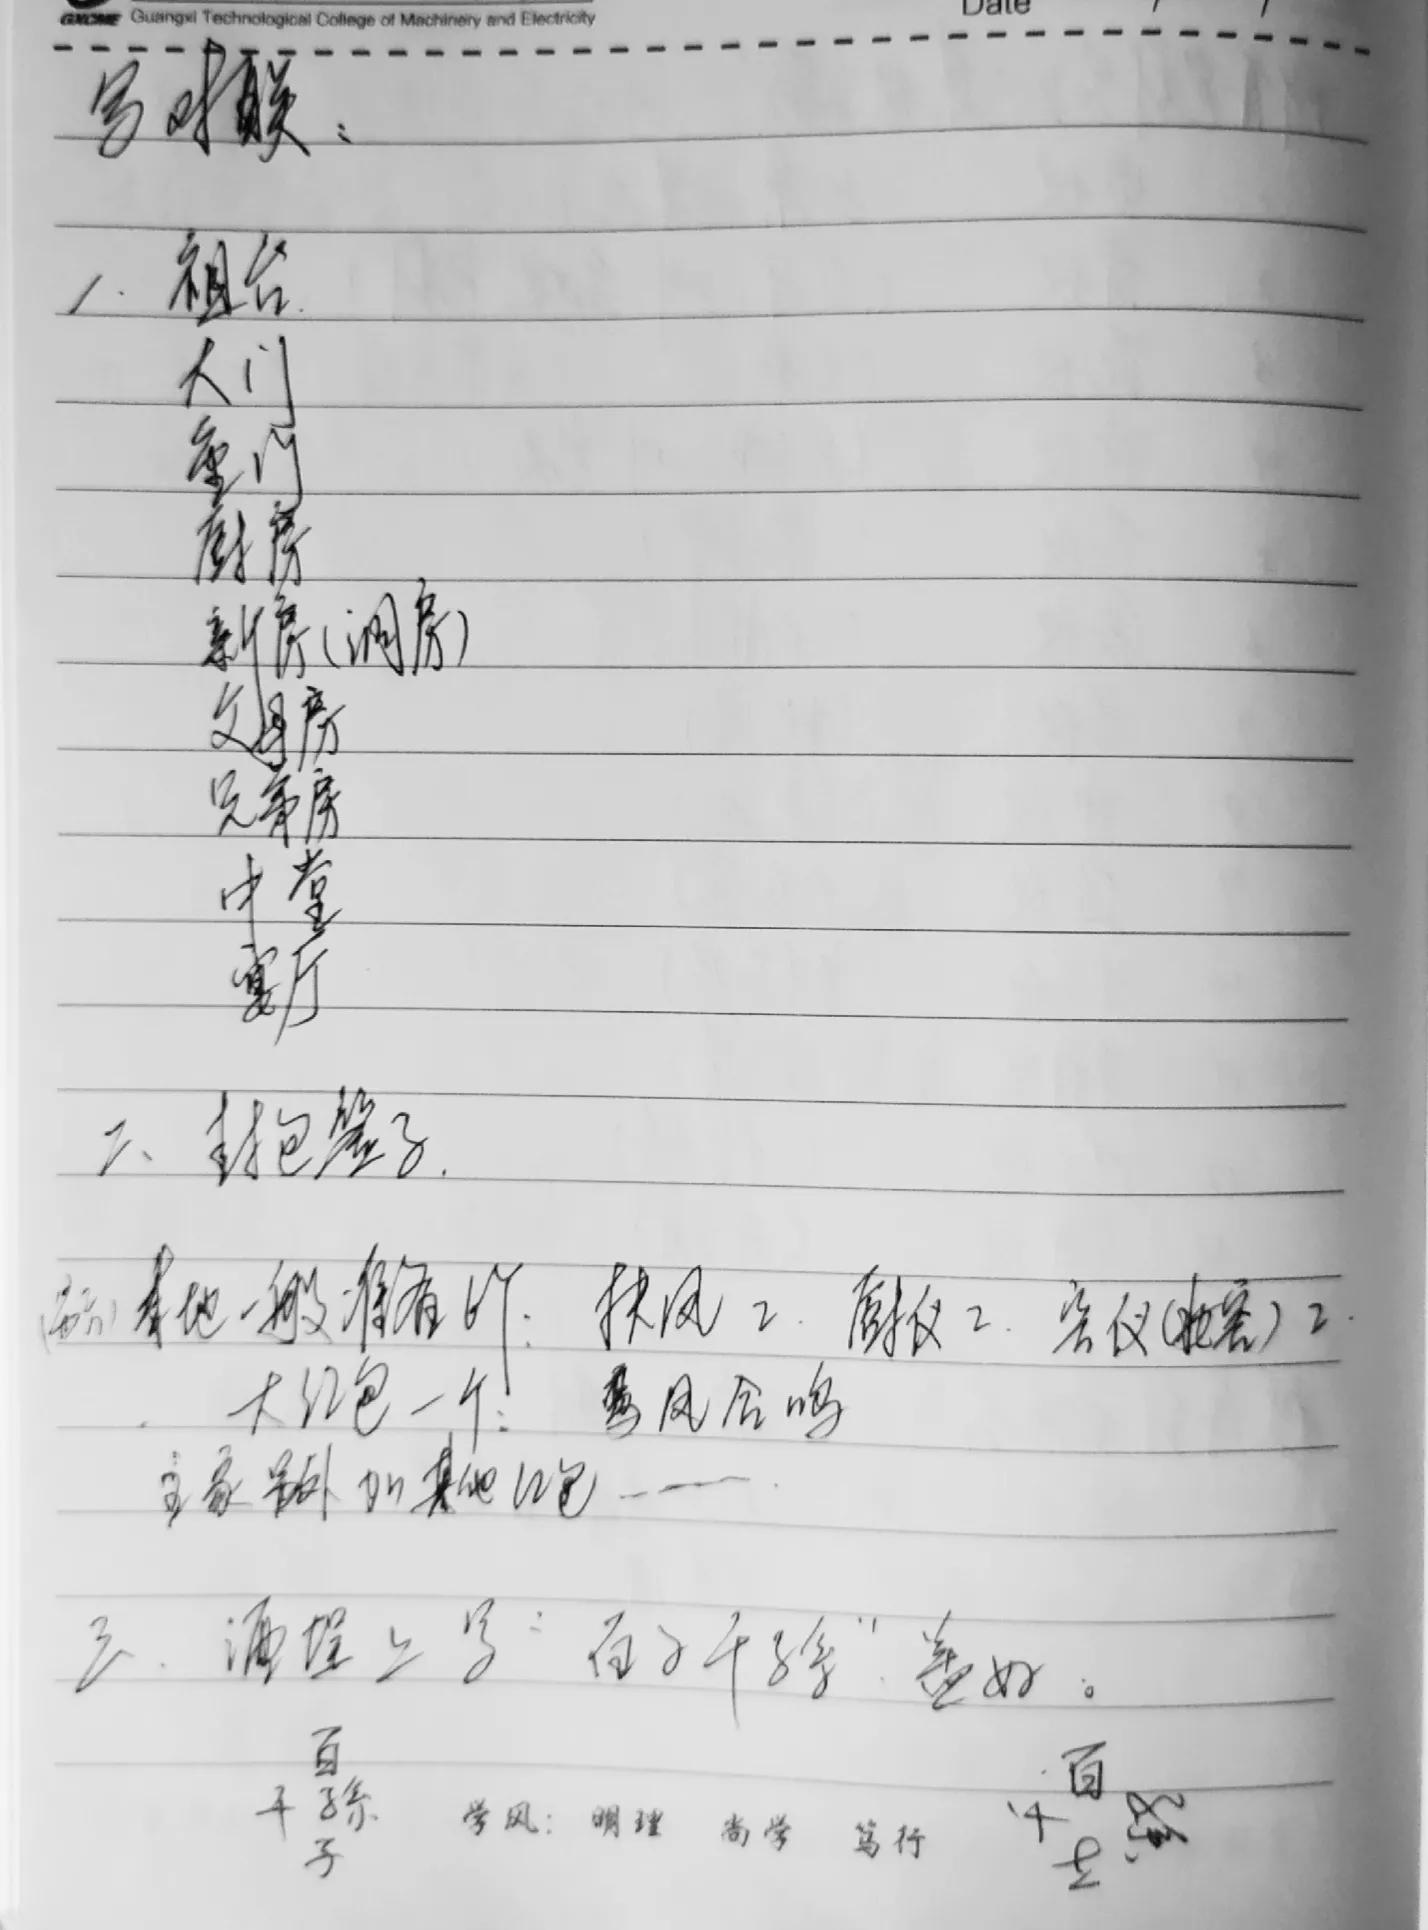 GXCME Guangxi Technological College of Machinery and Electricity
Date / /
写对联：
一. 祖台.
大门
重门
厨房
新房(洞房)
父母房
兄弟房
中堂
客厅
二、封包签子.
本地一般准备6个: 扶风2. 厨仪2. 客仪(拖客)2.
大红包一个: 鸾凤合鸣
主家另外加其他红包 ——.
三. 酒埕上写"百子千孙" 盖好。
百
千 子孙
子
学风: 明理 尚学 笃行
百
千 孙
子